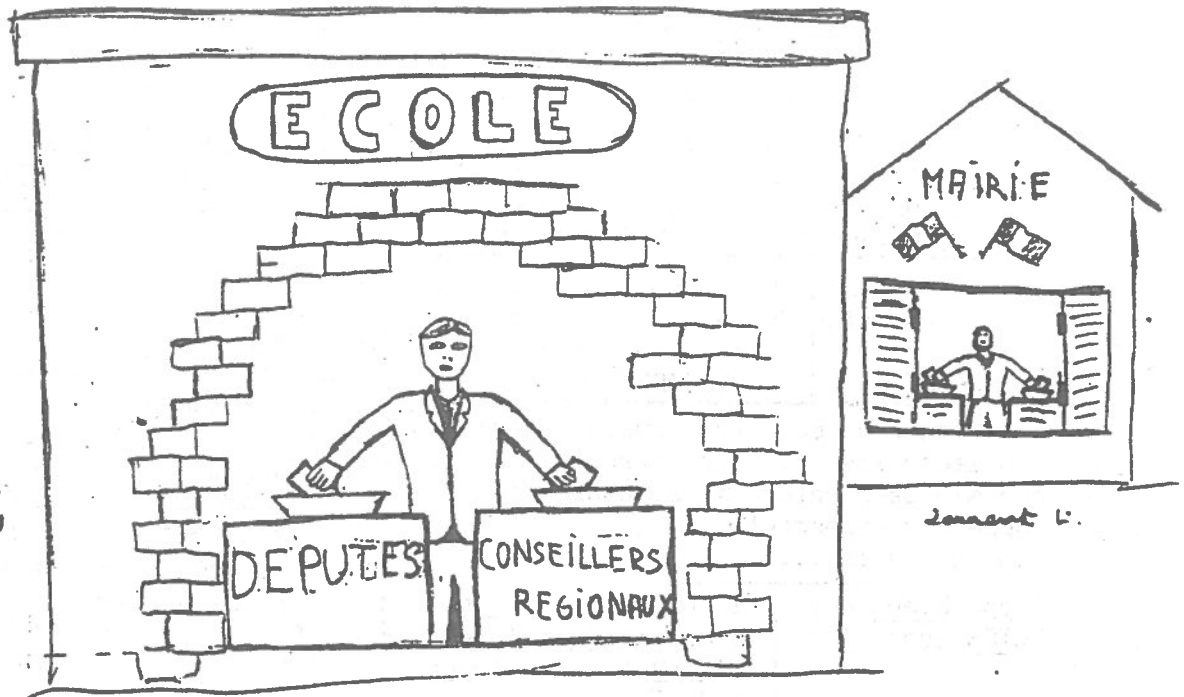 ECOLE
MAIRIE
DEPUTES
CONSEILLERS
REGIONAUX